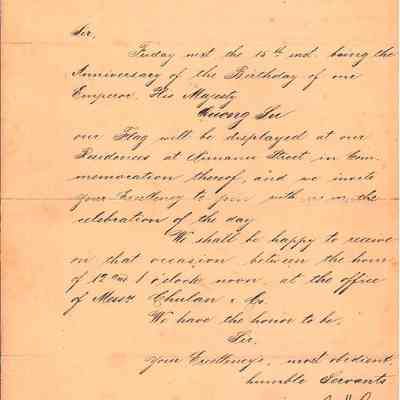 Sir,
Friday next the 15th inst. being the
Anniversary of the Birthday of our
Emperor, His Majesty
Quong Su
our Flag will be displayed at our
Residences at Nuuanu Street, in Com-
memoration thereof, and we invite
your Excellency to join with us in the
celebration of the day
We shall be happy to receive
on that occasion between the hour
of 12 and 1 o'clock noon, at the office
of Messrs Chulan & Co.
We have the honor to be,
Sir,
your Excellency's, most obedient,
humble Servants